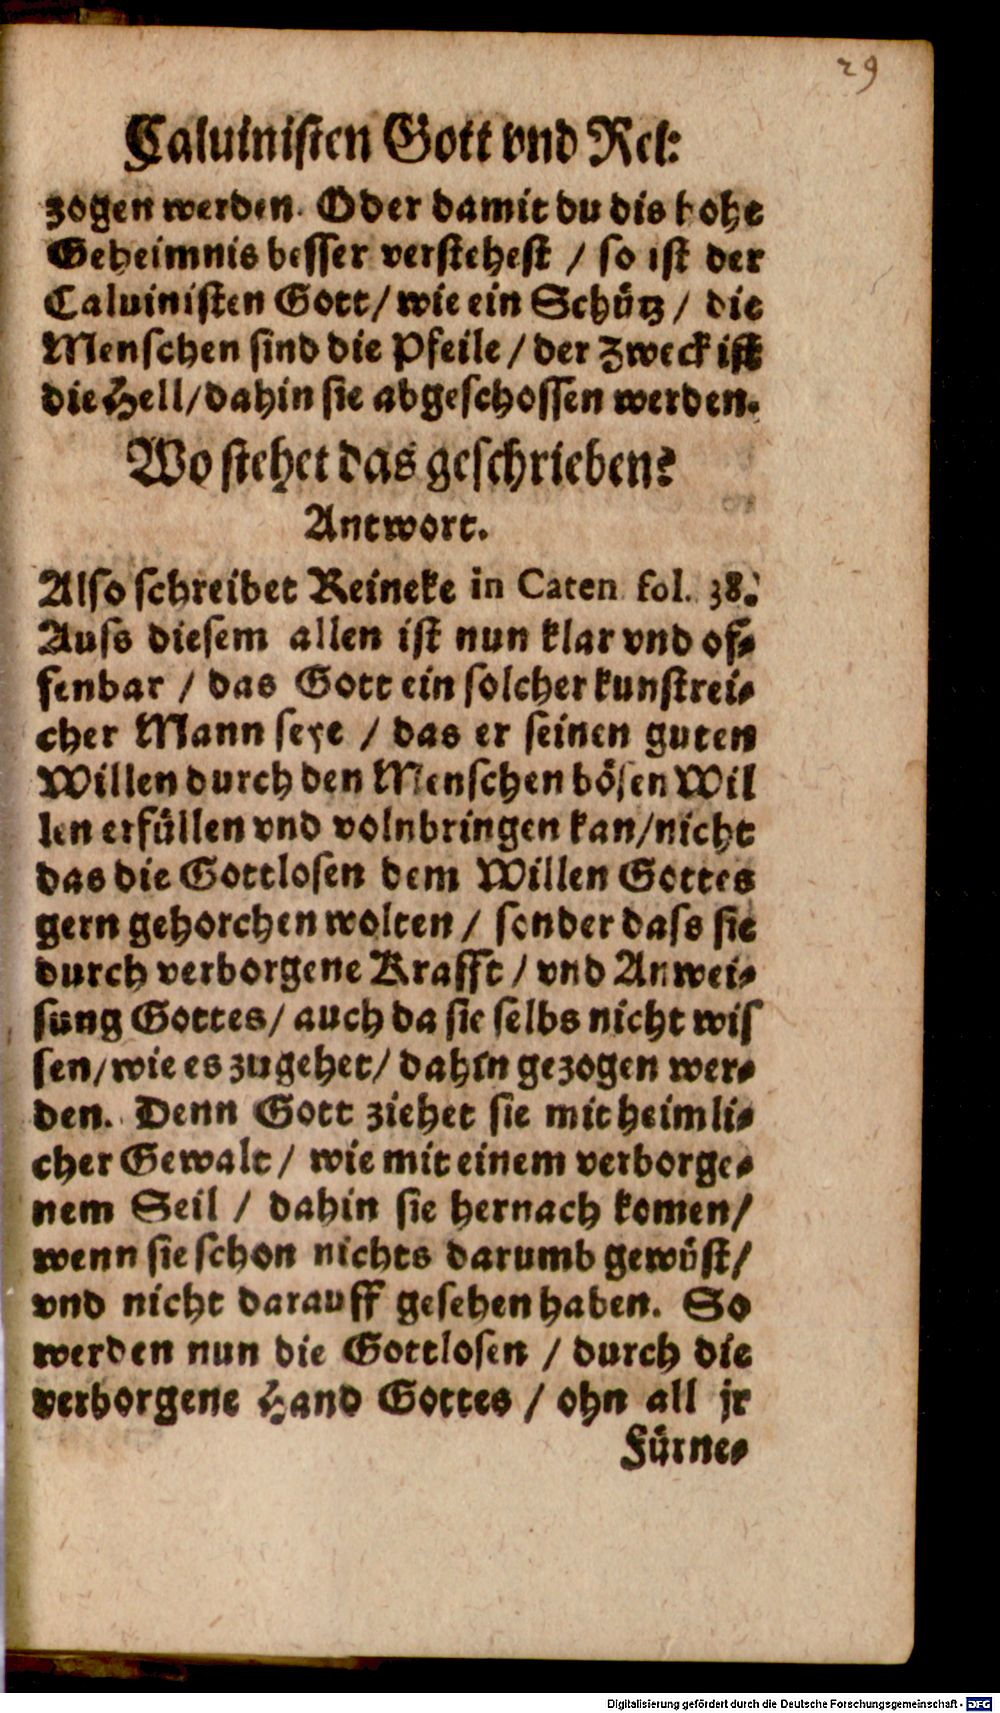 29
Caluinisten Gott vnd Rel:
zogen werden. Oder damit du dis hohe
Geheimnis besser verstehest / so ist der
Caluinisten Gott / wie ein Schütz / die
Menschen sind die Pfeile / der Zweck ist
die Hell / dahin sie abgeschossen werden.
Wo stehet das geschrieben?
Antwort.
Also schreibet Reineke in Caten fol. 38.
Auss diesem allen ist nun klar vnd of-
fenbar / das Gott ein solcher kunstrei-
cher Mann seye / das er seinen guten
Willen durch den Menschen bösen Wil
len erfüllen vnd volnbringen kan / nicht
das die Gottlosen dem Willen Gottes
gern gehorchen wolten / sonder dass sie
durch verborgene Krafft / vnd Anwei-
sung Gottes / auch da sie selbs nicht wis
sen / wie es zugehet / dahin gezogen wer-
den. Denn Gott ziehet sie mit heimli-
cher Gewalt / wie mit einem verborge-
nem Seil / dahin sie hernach komen /
wenn sie schon nichts darumb gewüst /
vnd nicht darauff gesehen haben. So
werden nun die Gottlosen / durch die
verborgene Hand Gottes / ohn all jr
Fürne-
Digitalisierung gefördert durch die Deutsche Forschungsgemeinschaft - DFG